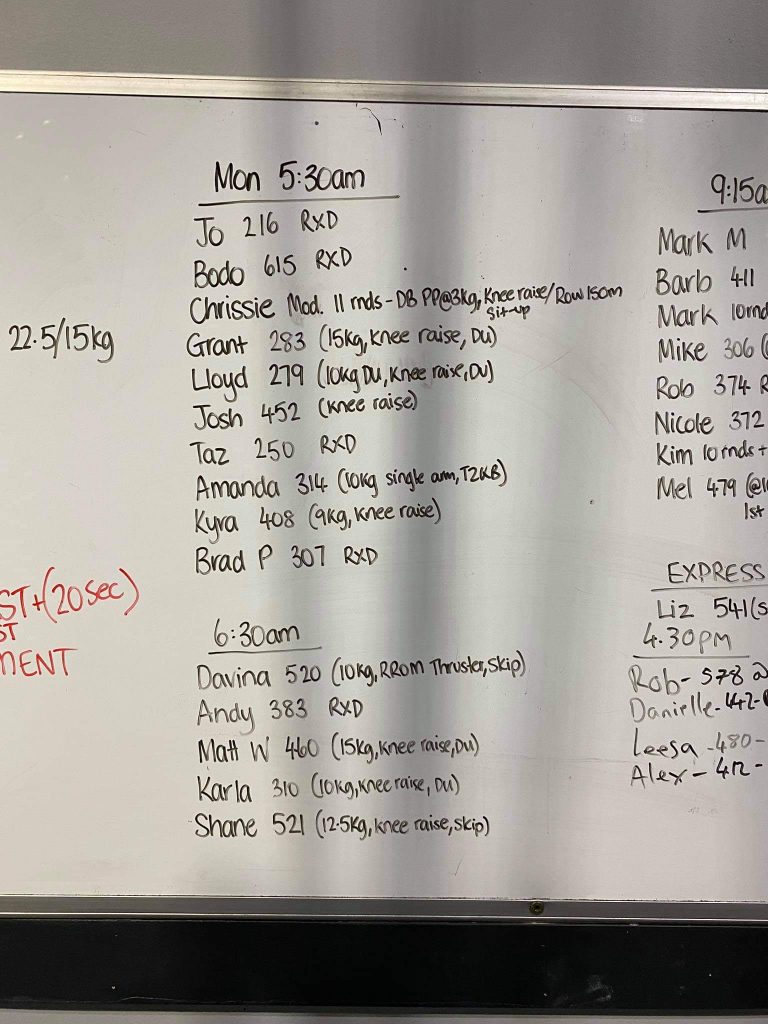 22.5/15kg
ST+(20sec)
ST
MENT
Mon 5:30am
Jo 216 RXD
Bodo 615 RXD
Chrissie Mod. 11 rnds - DB PP@3kg, Knee raise/Row 150m
Sit-up
Grant 283 (15kg, Knee raise, DU)
Lloyd 279 (10kg DU, Knee raise, DU)
Josh 452 (Knee raise)
Taz 250 RXD
Amanda 314 (10kg single arm, T2KB)
Kyra 408 (9kg, Knee raise)
Brad P 307 RXD
6:30am
Davina 520 (10kg, RROM Thruster, Skip)
Andy 383 RXD
Matt W 460 (15kg, Knee raise, DU)
Karla 310 (10kg, Knee raise, DU)
Shane 521 (12.5kg, Knee raise, skip)
9:15a
Mark M
Barb 411
Mark 10rnd
Mike 306 (
Rob 374 R
Nicole 372
Kim 10 rnds +
Mel 479 (@1
1st
EXPRESS
Liz 541 (s
4.30PM
Rob - 578 @
Danielle - 442 -
Leesa - 480 -
Alex - 412 -